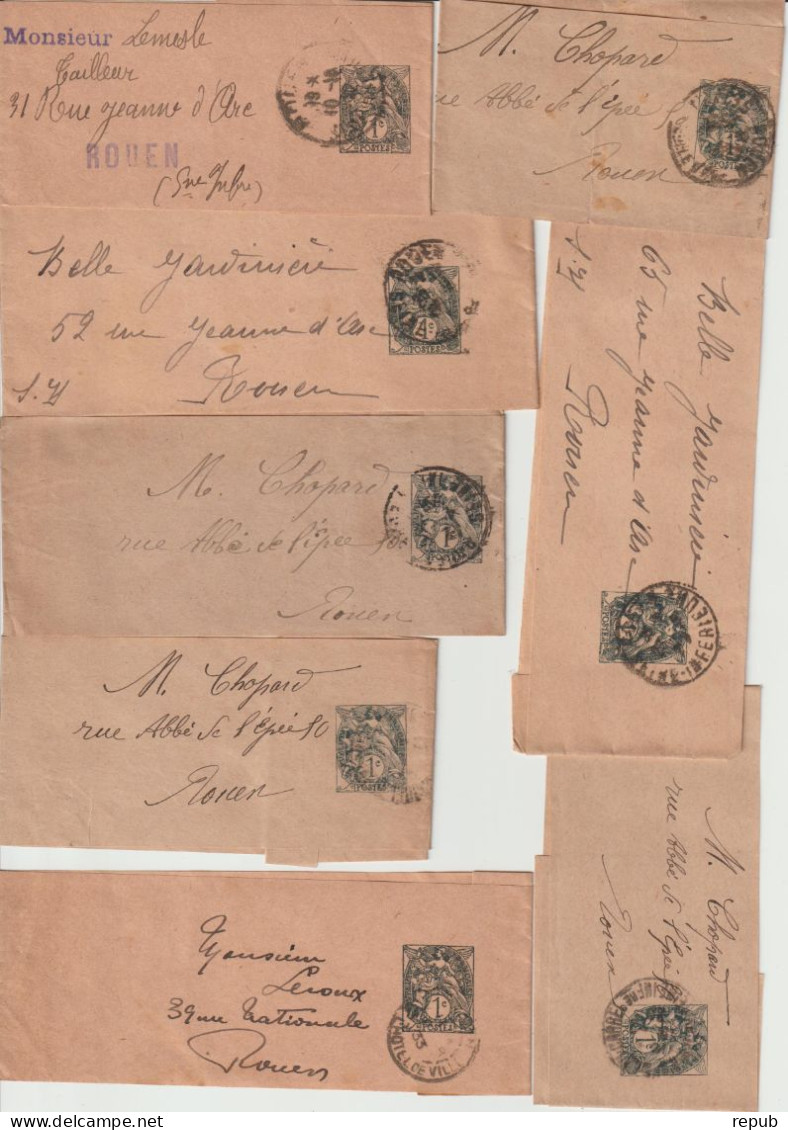 Monsieur Lemesle
Tailleur
31 Rue Jeanne d'Arc
ROUEN
(Sne Infre)
1c
POSTES
M. Chopard
rue Abbé de l'épée
Rouen
POSTES
Belle Jardinière
52 rue Jeanne d'Arc
S.V
Rouen
ROUEN
1c
POSTES
Belle Jardinière
65 rue Jeanne d'Arc
S.V
Rouen
INFERIEURE
M. Chopard
rue Abbé de l'épée 50
Rouen
1c
M. Chopard
rue Abbé de l'épée 50
Rouen
1c
POSTES
M. Chopard
rue Abbé de l'épée
Rouen
1c
Monsieur
Leroux
39 rue Nationale
Rouen
1c
POSTES
HOTEL DE VILLE
delcampe.net
repub